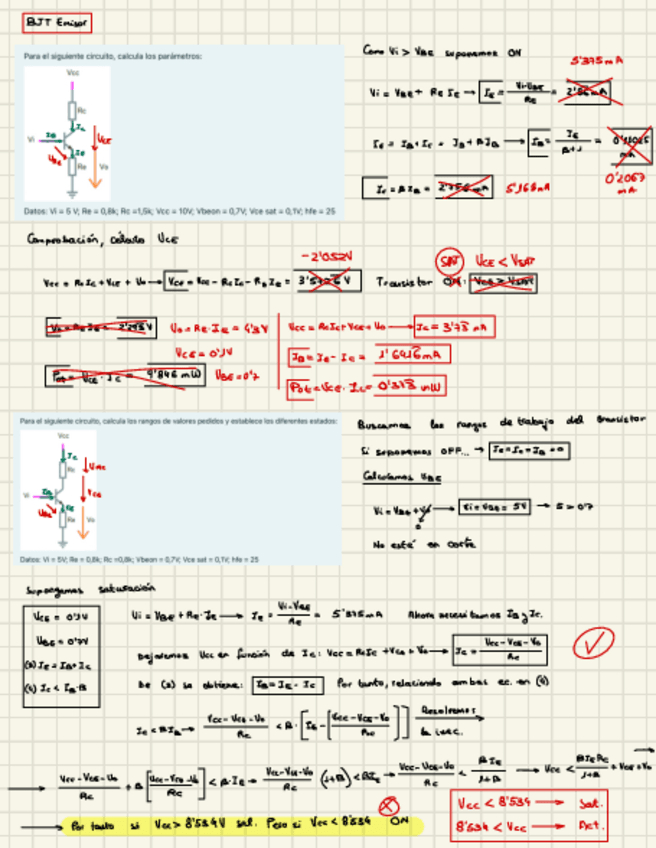 BJT Emisor
Para el siguiente circuito, calcula los parámetros:
Vcc
Rc
Ic
Vi
IB
VCE
VBE
IE
Re
Vo
Datos: Vi = 5 V; Re = 0,8k; Rc =1,5k; Vcc = 10V; Vbeon = 0,7V; Vce sat = 0,1V; hfe = 25
Como Vi > VBE suponemos ON
5'375mA
Vi = VBE + RE IE → IE = (Vi-VBE)/RE = mA
IE = IB + IC = IB + βIB → IB = IE/(β+1) = mA
0'2067 mA
IC = βIB = mA 5'168mA
Comprobación, cálculo VCE
-2'052V
Vcc = RcIc + VCE + Vo → VCE = Vcc - RcIc - REIE = V
SAT VCE < VSAT
Transistor ON: VCE > VSAT
Vo = RE IE = V Vo = RE·IE = 4'3V
VCE = 0'1V
Pot = VCE · IC = mW VBE = 0'7
Vcc = RcIc + VCE + Vo → Ic = 3'73 mA
IB = IE - IC = 1'6416mA
Pot = VCE · IC = 0'373 mW
Para el siguiente circuito, calcula los rangos de valores pedidos y establece los diferentes estados:
Vcc
Ic
Rc
VRC
Vi
IB
VCE
VBE
IE
Re
Vo
Datos: Vi = 5V; Re = 0,8k; Rc =0,8k; Vbeon = 0,7V; Vce sat = 0,1V; hfe = 25
Buscamos los rangos de trabajo del transistor
Si suponemos OFF... → IE = IC = IB = 0
Calculamos VBE
Vi = VBE + Vo → Vi = VBE = 5V → 5 > 0'7
0
No está en corte
Supongamos saturación
VCE = 0'1V
VBE = 0'7V
(a) IE = IB + IC
(b) IC < IB·β
Vi = VBE + RE·IE → IE = (Vi-VBE)/RE = 5'375mA Ahora necesitamos IB y IC.
Dejaremos Vcc en función de Ic: Vcc = RcIc + VCE + Vo → Ic = (Vcc-VCE-Vo)/Rc
De (a) se obtiene: IB = IE - IC Por tanto, relacionando ambas ec. en (b)
IC < βIB → (Vcc-VCE-Vo)/Rc < β·[IE - [(Vcc-VCE-Vo)/Rc]] Resolvemos la inec.
→ (Vcc-VCE-Vo)/Rc + β[(Vcc-VCE-Vo)/Rc] < β·IE → (Vcc-VCE-Vo)/Rc (1+β) < βIE → (Vcc-VCE-Vo)/Rc < βIE/(1+β) → Vcc < βIERc/(1+β) + VCE + Vo →
→ Por tanto si Vcc > 8'534V sat. Pero si Vcc < 8'534 ON
Vcc < 8'534 → Sat.
8'534 < Vcc → Act.